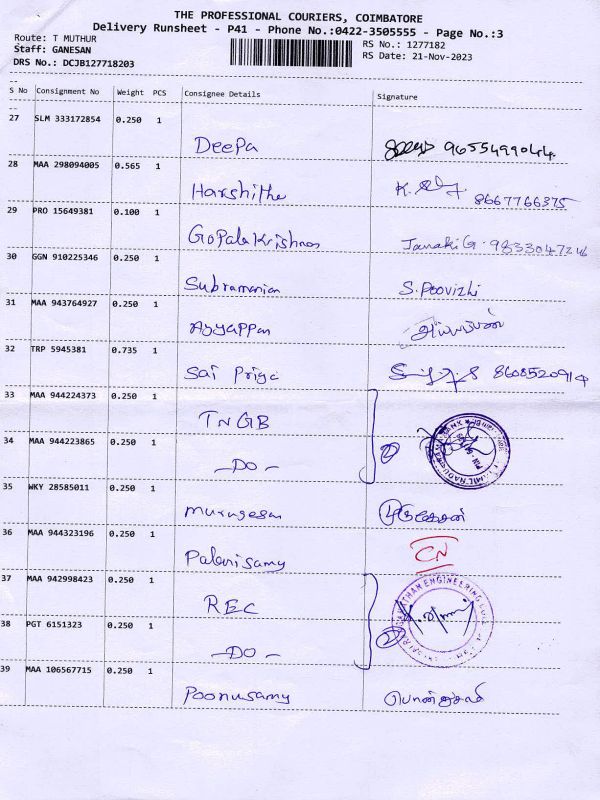 THE PROFESSIONAL COURIERS, COIMBATORE
Delivery Runsheet - P41 - Phone No.:0422-3505555 - Page No.:3
Route: T MUTHUR
RS No.: 1277182
Staff: GANESAN
RS Date: 21-Nov-2023
DRS No.: DCJB127718203
S No Consignment No Weight PCS Consignee Details Signature
27 SLM 333172854 0.250 1
Deepa 9655499044
28 MAA 298094005 0.565 1
Harshitha K. 8667766375
29 PRO 15649381 0.100 1
Gopalakrishnan Janaki G.
30 GGN 910225346 0.250 1
Subramanian S. Poovizhi
31 MAA 943764927 0.250 1
Ayyappan அய்யப்பன்
32 TRP 5945381 0.735 1
Sai Priya 8608520914
33 MAA 944224373 0.250 1
TNGB
34 MAA 944223865 0.250 1
-DO- 2
35 WKY 28585011 0.250 1
Murugesan முருகேசன்
36 MAA 944323196 0.250 1
Palanisamy CN
37 MAA 942998423 0.250 1
REC
38 PGT 6151323 0.250 1
-DO- 2
39 MAA 106567715 0.250 1
Poonusamy பொன்னுசாமி